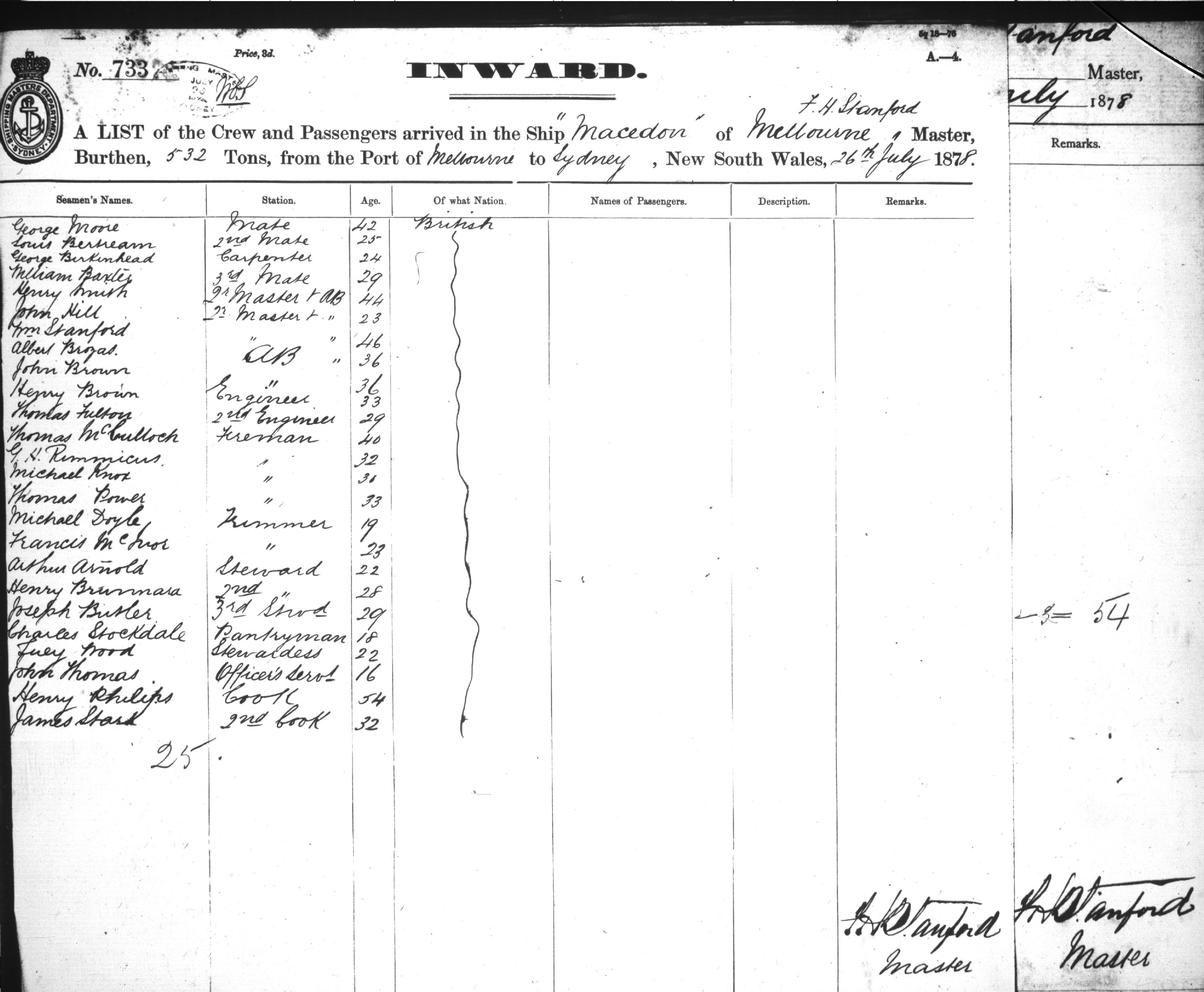 5g 18—76
anford
No. 733
Price, 3d.
INWARD.
A.—4.
Master,
SHIPPING MASTERS DEPARTMENT SYDNEY
JULY
F. H. Stanford
uly 1878
A LIST of the Crew and Passengers arrived in the Ship "Macedon" of Melbourne " Master,
Remarks.
Burthen, 532 Tons, from the Port of Melbourne to Sydney , New South Wales, 26th July 1878.
Seamen's Names. Station. Age. Of what Nation. Names of Passengers. Description. Remarks.
George Moore Mate 42 British
Louis Bertream 2nd Mate 25
George Birkinhead Carpenter 24
William Baxter 3rd Mate 29
Henry Smith Master & AB 44
John Hill Master & " 23
Wm Stanford " " 46
Albert Brozas. AB " 36
John Brown " 36
Henry Brown Engineer 33
Thomas Fulton 2nd Engineer 29
Thomas McCulloch Fireman 40
G. H. Rimmicus. " 32
Michael Knox " 31
Thomas Power " 33
Michael Doyle, Trimmer 19
Francis McIvor " 23
Arthur Arnold Steward 22
Henry Brunnara 2nd " 28
Joseph Butler 3rd Stwd 29
Charles Stockdale Pantryman 18
Wood Stewardess 22
John Thomas Officer's Servt 16
Henry Philips Cook 54
James Stark 2nd Cook 32
25
= 54
F. H. Stanford
Master
F. H. Stanford
Master